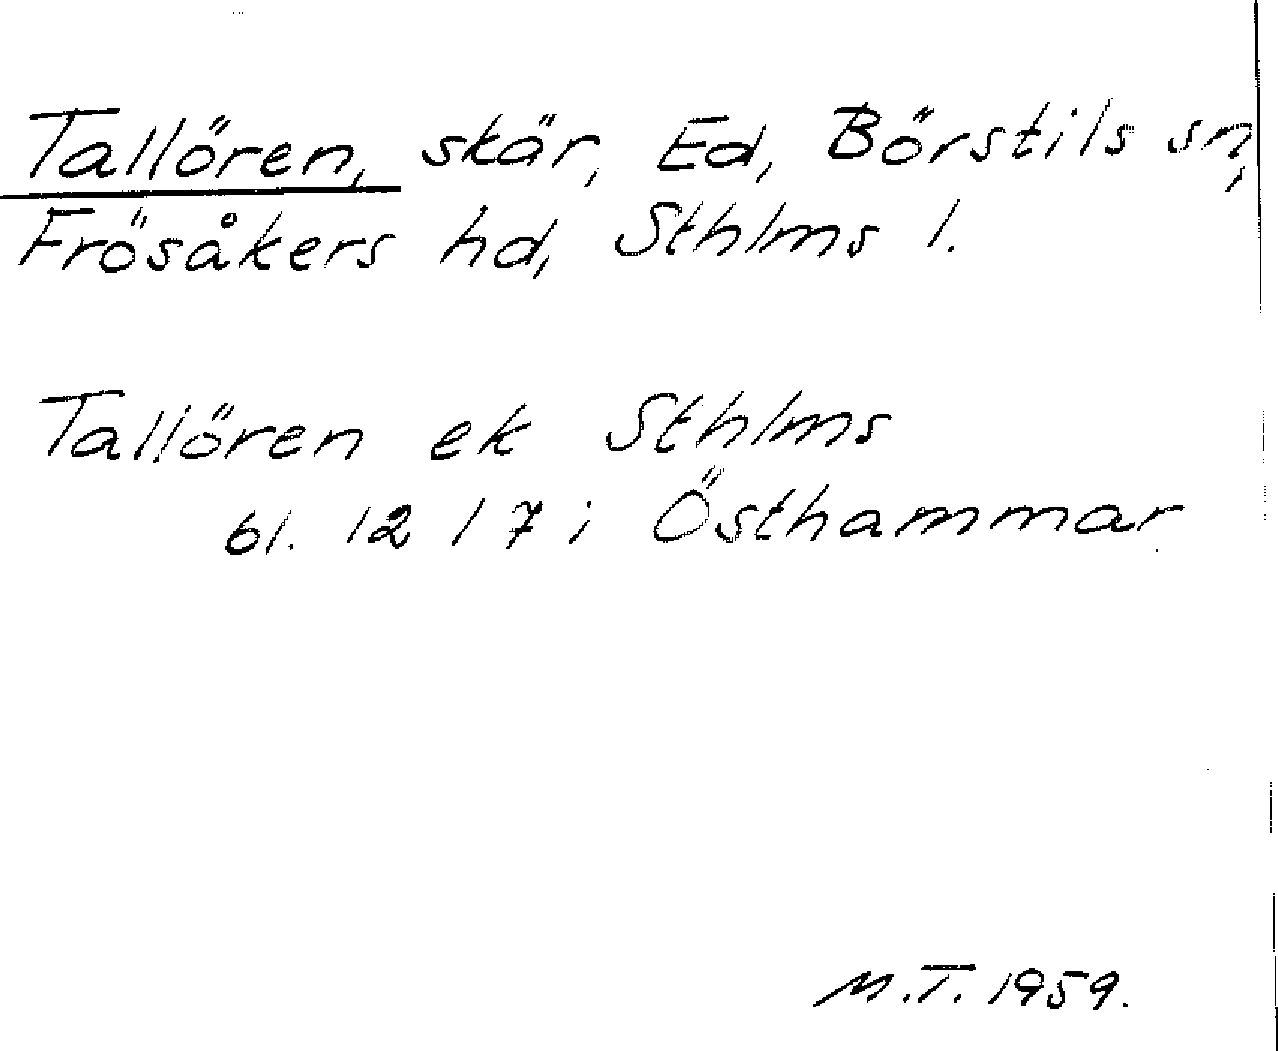 Tallören, skär, Ed, Börstils sn,
Frösåkers hd, Sthlms l.
Tallören ek Sthlms
bl. 12 / 7 i Östhammar
M.T. 1959.